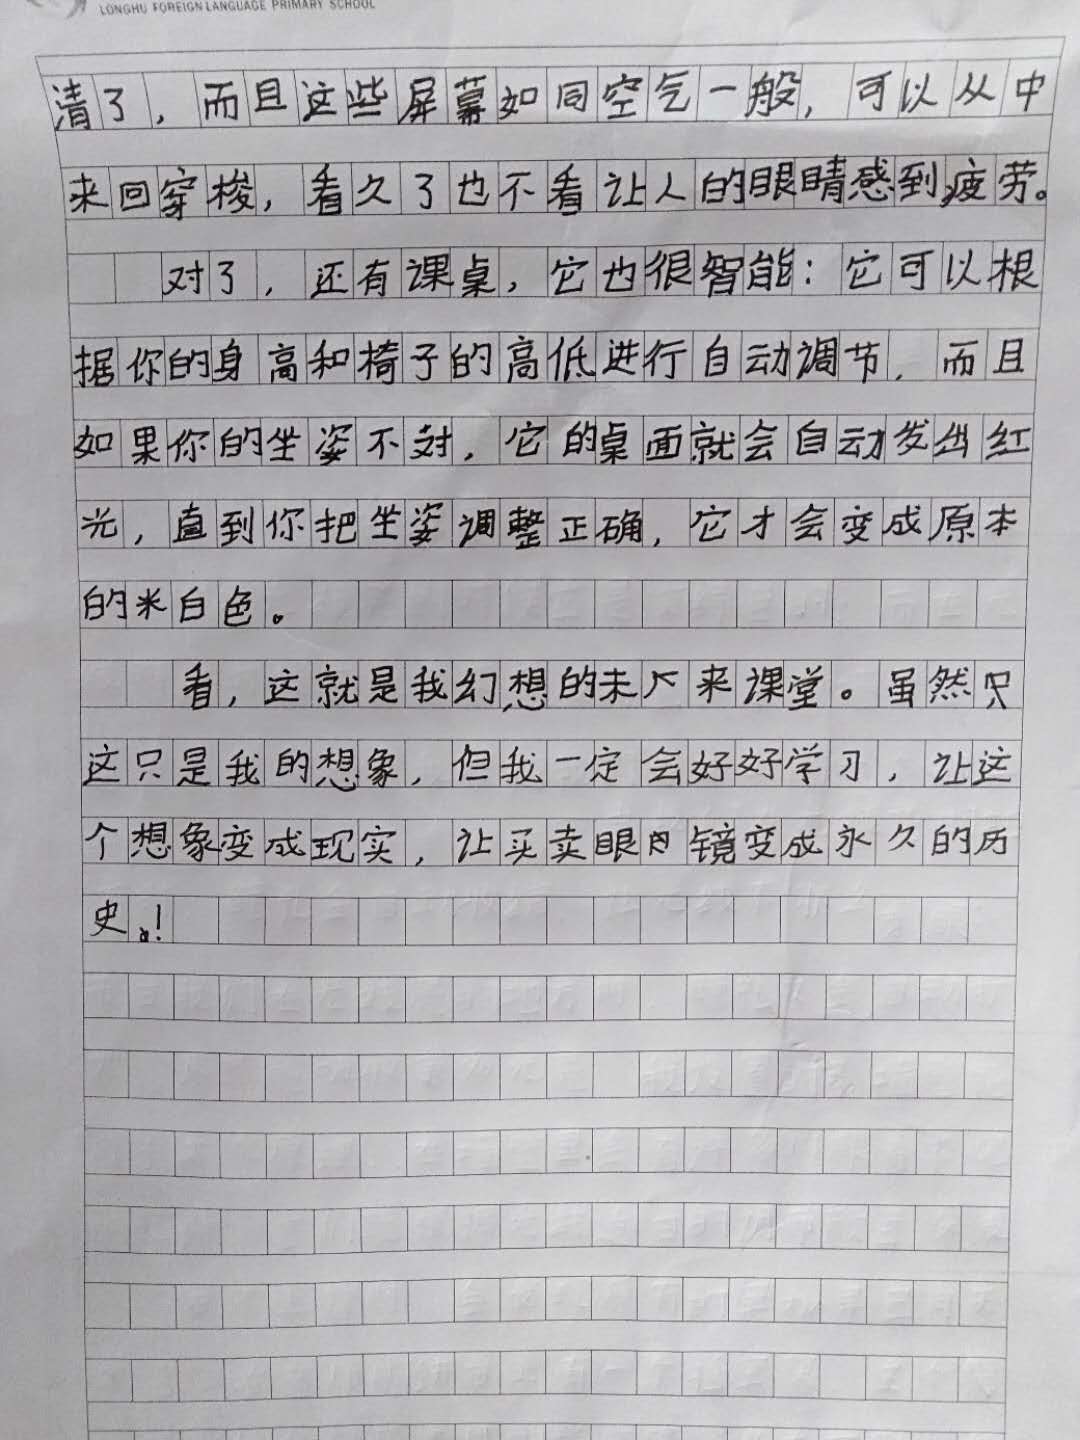 LONGHU FOREIGN LANGUAGE PRIMARY SCHOOL
清了，而且这些屏幕如同空气一般，可以从中
来回穿梭，看久了也不看让人的眼睛感到疲劳。
对了，还有课桌，它也很智能：它可以根
据你的身高和椅子的高低进行自动调节，而且
如果你的坐姿不对，它的桌面就会自动发出红
光，直到你把坐姿调整正确，它才会变成原本
的米白色。
看，这就是我幻想的未来课堂。虽然只
这只是我的想象，但我一定会好好学习，让这
个想象变成现实，让买卖眼镜变成永久的历
史。！